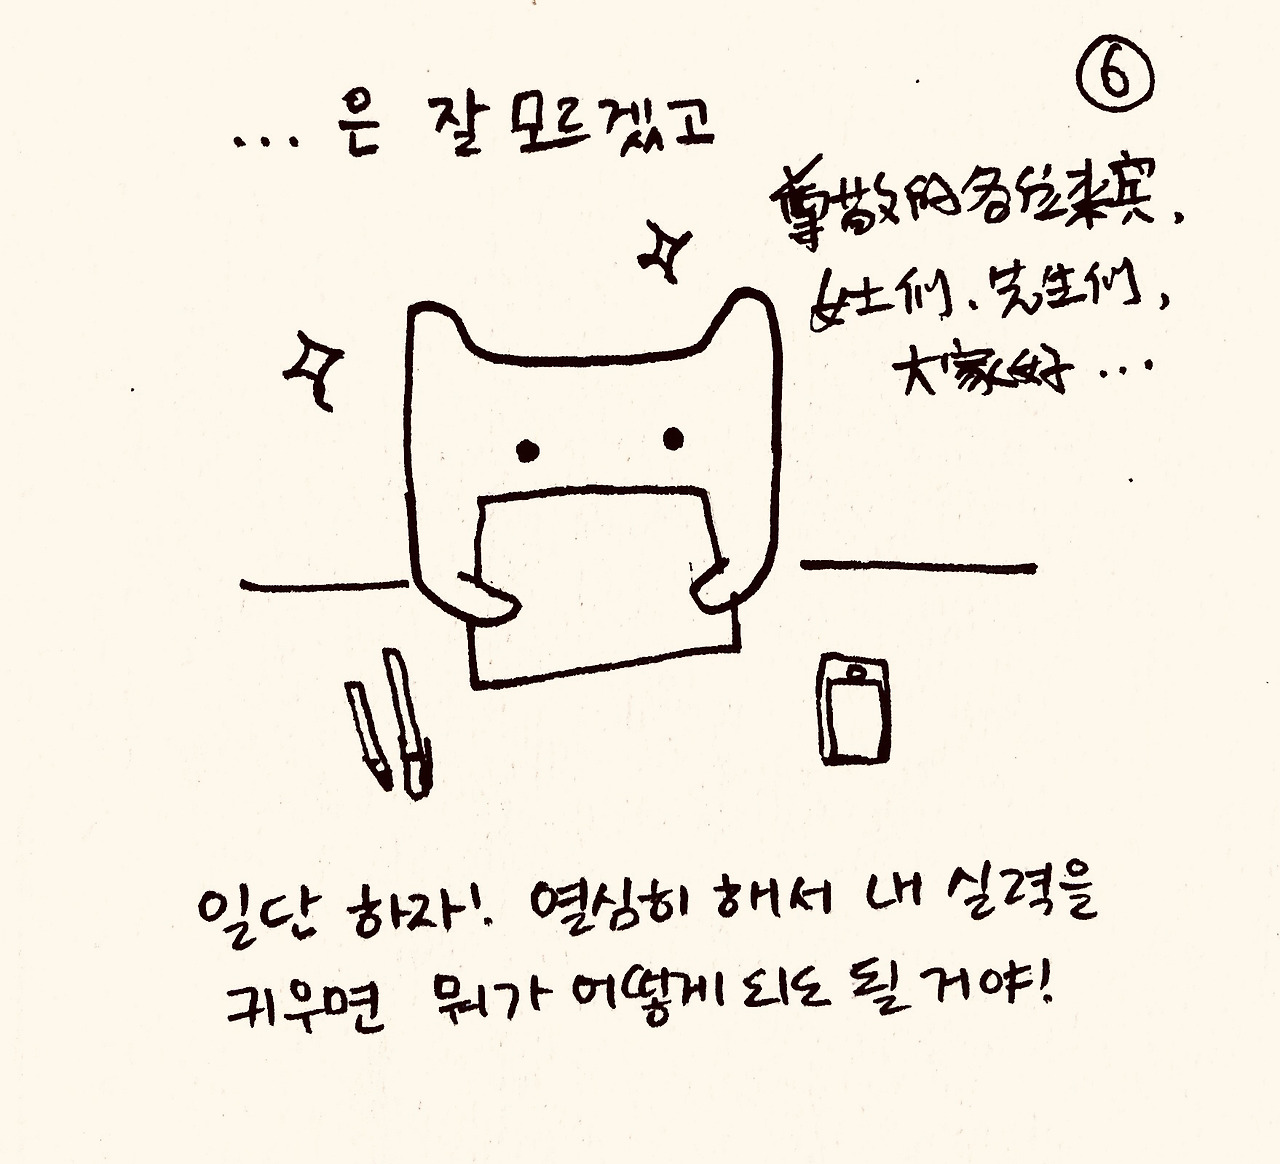 ⑥
...은 잘 모르겠고
尊敬的各位来宾,
女士们、先生们,
大家好...
일단 하자! 열심히 해서 내 실력을
키우면 뭐가 어떻게 되도 될 거야!